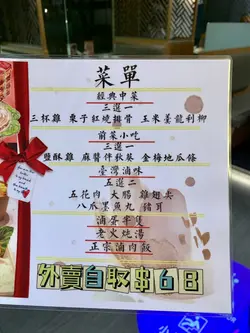 菜單
經典中菜
三選一
三杯雞 栗子紅燒排骨 玉米羹龍利柳
前菜小吃
三選一
鹽酥雞 麻醬伴秋葵 金梅地瓜條
臺灣滷味
五選二
五花肉 大腸 雞翅尖
八爪墨魚丸 豬耳
滷蛋半隻
老火炖湯
正宗滷肉飯
外賣自取$68